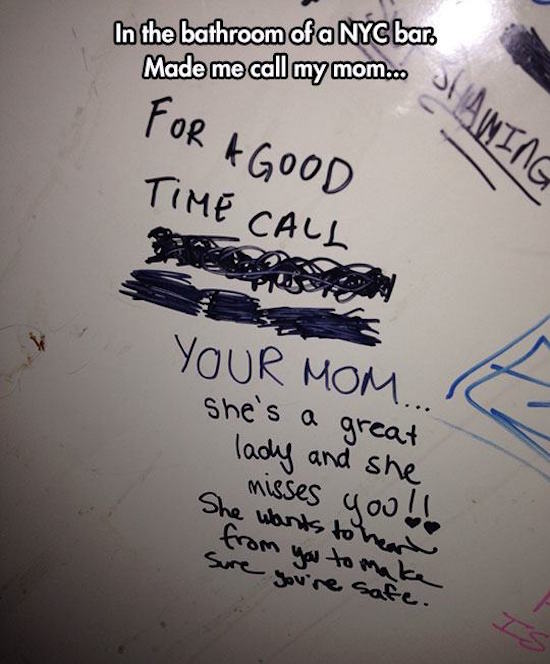 In the bathroom of a NYC bar.
Made me call my mom...
FOR A GOOD
TIME CALL
YOUR MOM...
she's a great
lady and she
misses you!!
She wants to hear
from you to make
sure you're safe.
IS